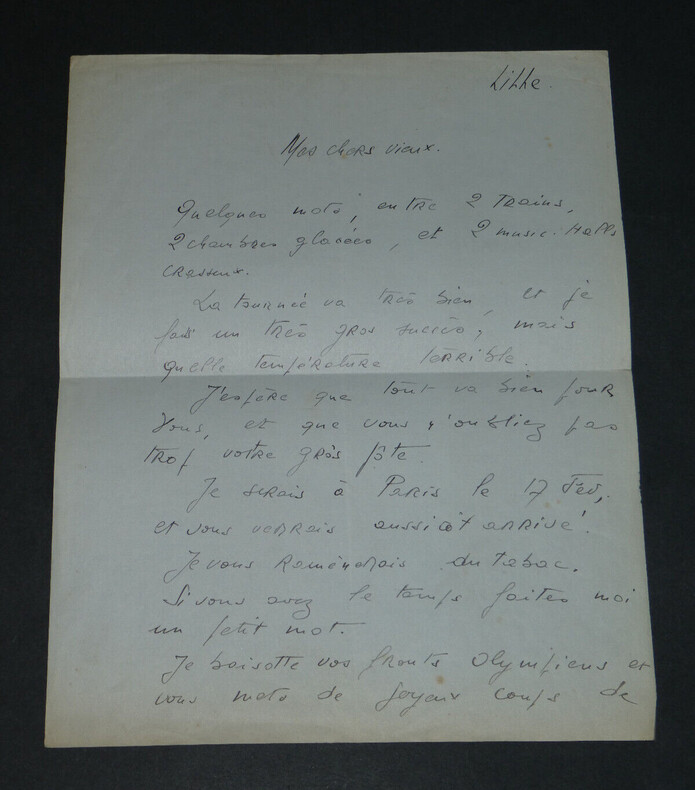 Lille.
Mes chers vieux.
Quelques mots, entre 2 trains,
2 chambres glacées, et 2 music-Halls
crasseux.
La tournée va très bien, et je
fais un très gros succès, mais
quelle température terrible.
J'espère que tout va bien pour
vous, et que vous n'oubliez pas
trop votre gros pôte.
Je serais à Paris le 17 Fev,
et vous verrais aussitôt arrivé.
Je vous ramènerais du tabac.
Si vous avez le temps faites moi
un petit mot.
Je baisotte vos fronts olympiens et
vous mets de joyeux coups de